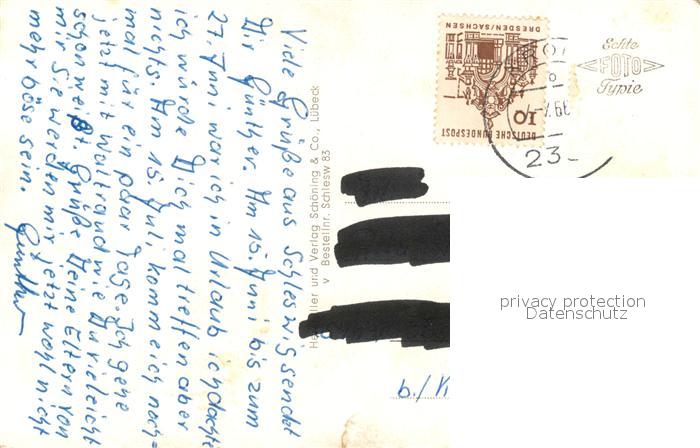 Viele Grüße aus Schleswig sendet
Dir Günther. Am 15. Juni bis zum
27. Juni war ich in Urlaub ich dachte
ich würde Dich mal treffen aber
nichts. Am 15. Juli komme ich noch=
mal für ein paar Tage. Ich gehe
jetzt mit Waltraud wie Du vieleicht
schon weißt Grüße Deine Eltern von
mir Sie werden mir jetzt wohl nicht
mehr böse sein. Günther
Hersteller und Verlag Schöning & Co., Lübeck
Bestellnr. Schlesw 83
DRESDEN/SACHSEN
DEUTSCHE BUNDESPOST
10
23-
Echte
FOTO
Typie
b./K
privacy protection
Datenschutz